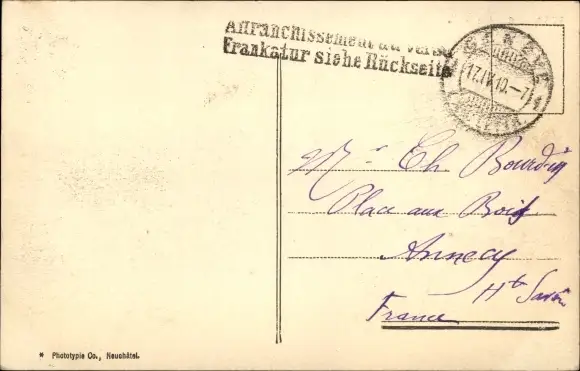 Affranchissement au verso
Frankatur siehe Rückseite
GENÈVE
17.IV.10.-7
Mr Ch Bourdin
Place aux Bois
Annecy
Hte Savoie
France
* Phototypie Co., Neuchâtel.